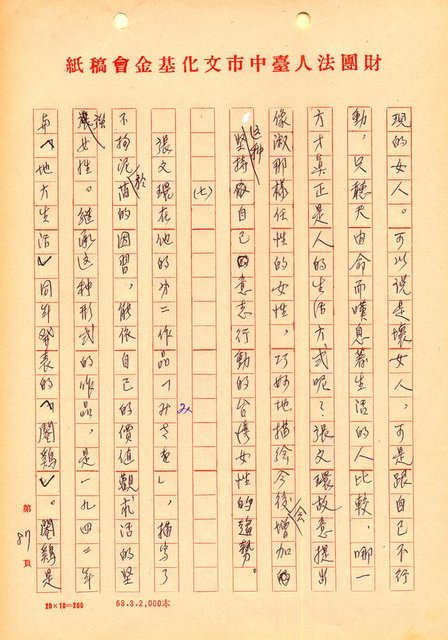 財團法人臺中市文化基金會稿紙
現的女人。可以說是壞女人，可是跟自己不行
動，只聽天由命而嘆息著生活的人比較，哪一
方才真正是人的生活方式呢？張文環故意提出
像淑那樣任性的女性，巧妙地描绘今後會增加
这种坚持自己意志行動的台湾女性的趨勢。
(七)
張文環在他的另二作品「みさを」，描写了
不拘泥於舊的因習，能依自己的價值觀求活的堅
強女性。继承这种形式的作品，是一九四二年
與《地方生活》同年發表的《閹鷄》。閹鷄是
第87頁
20×10=200
68.3.2,000本